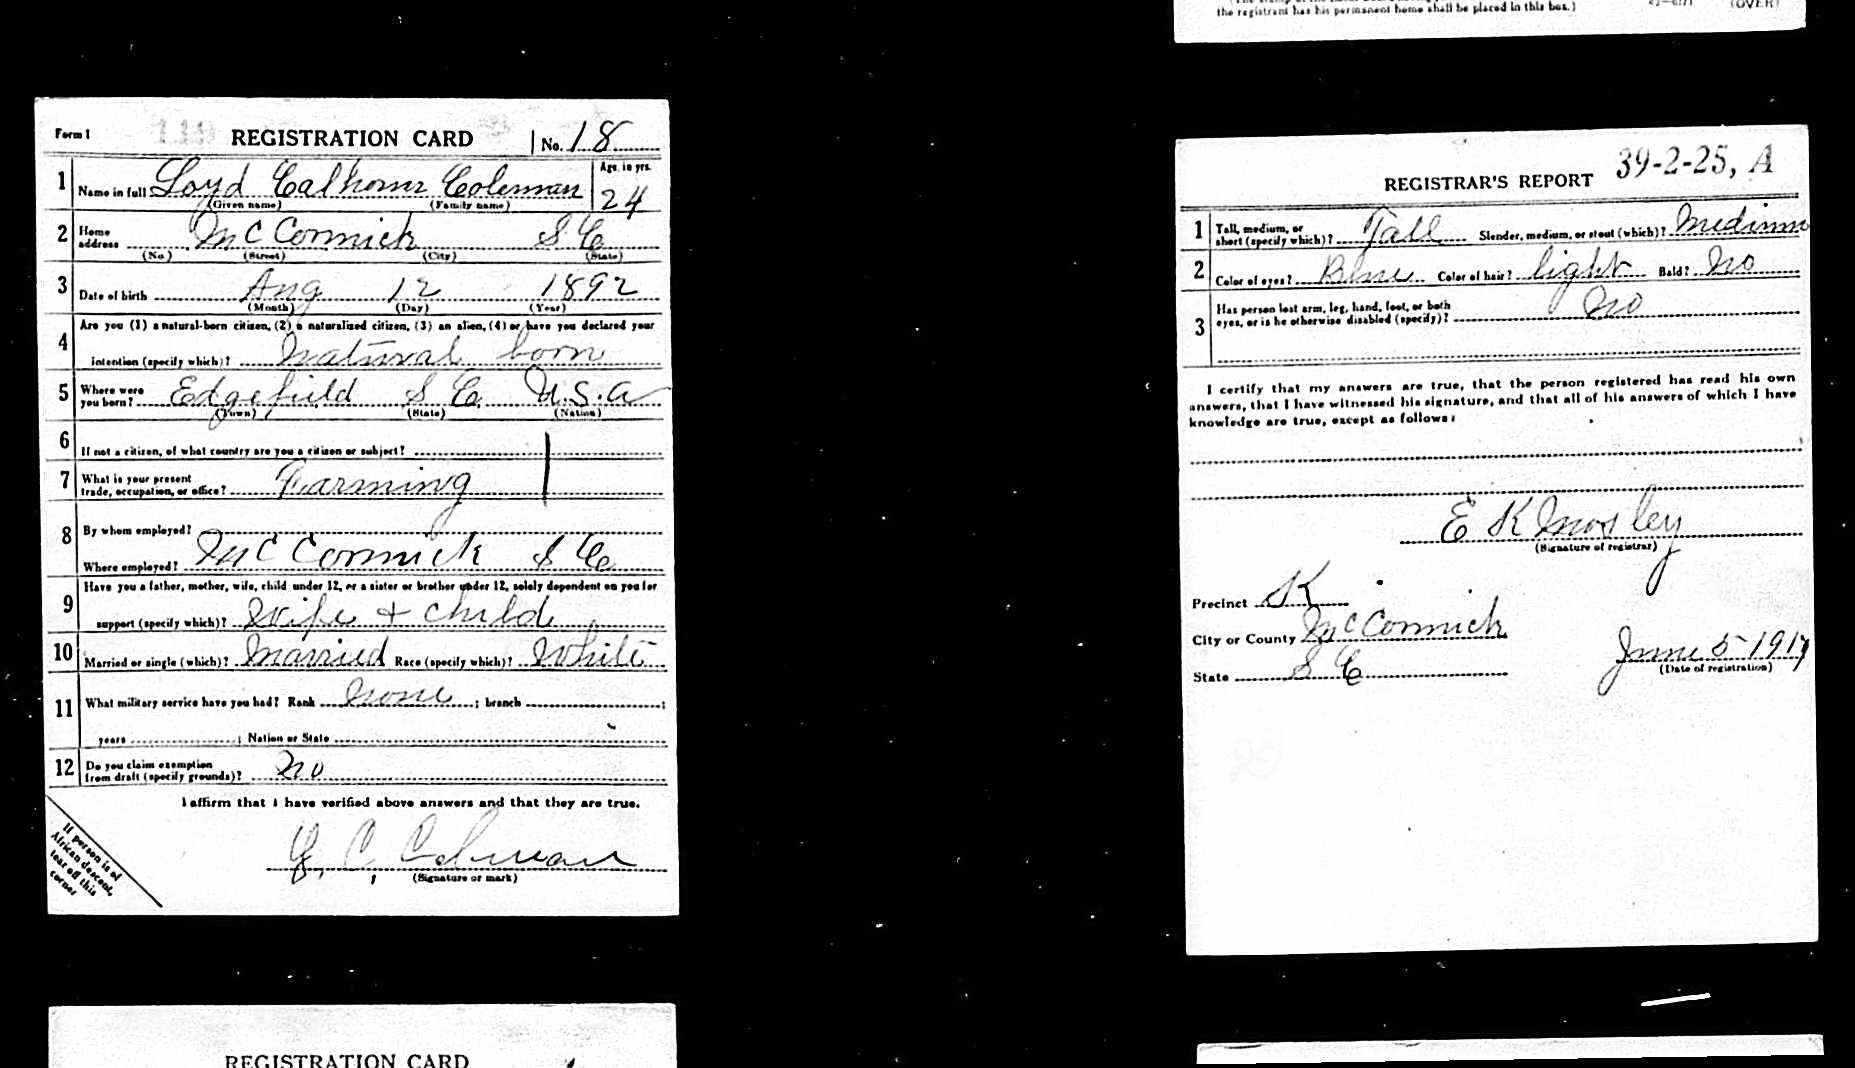 the registrant has his permanent home shall be placed in this box.) (OVER)
Form 1 REGISTRATION CARD No. 18
1 Name in full Loyd Calhoun Coleman Age, in yrs. 24
(Given name) (Family name)
2 Home address McCormick S C
(No.) (Street) (City) (State)
3 Date of birth Aug 12 1892
(Month) (Day) (Year)
4 Are you (1) a natural-born citizen, (2) a naturalized citizen, (3) an alien, (4) or have you declared your
intention (specify which)? Natural born
5 Where were you born? Edgefield S C U.S.A
(Town) (State) (Nation)
6 If not a citizen, of what country are you a citizen or subject?
7 What is your present trade, occupation, or office? Farming
8 By whom employed?
Where employed? McCormick S C
9 Have you a father, mother, wife, child under 12, or a sister or brother under 12, solely dependent on you for
support (specify which)? Wife + child
10 Married or single (which)? Married Race (specify which)? White
11 What military service have you had? Rank None ; branch ;
years ; Nation or State
12 Do you claim exemption from draft (specify grounds)? No
I affirm that I have verified above answers and that they are true.
C Coleman
(Signature or mark)
If person is of
African descent,
tear off this
corner
REGISTRATION CARD
39-2-25, A
REGISTRAR'S REPORT
1 Tall, medium, or short (specify which)? Tall Slender, medium, or stout (which)? Medium
2 Color of eyes? Blue Color of hair? light Bald? No
3 Has person lost arm, leg, hand, foot, or both eyes, or is he otherwise disabled (specify)? No
I certify that my answers are true, that the person registered has read his own
answers, that I have witnessed his signature, and that all of his answers of which I have
knowledge are true, except as follows:
E K Mosley
(Signature of registrar)
Precinct K
City or County McCormick
State S C
June 5 1917
(Date of registration)